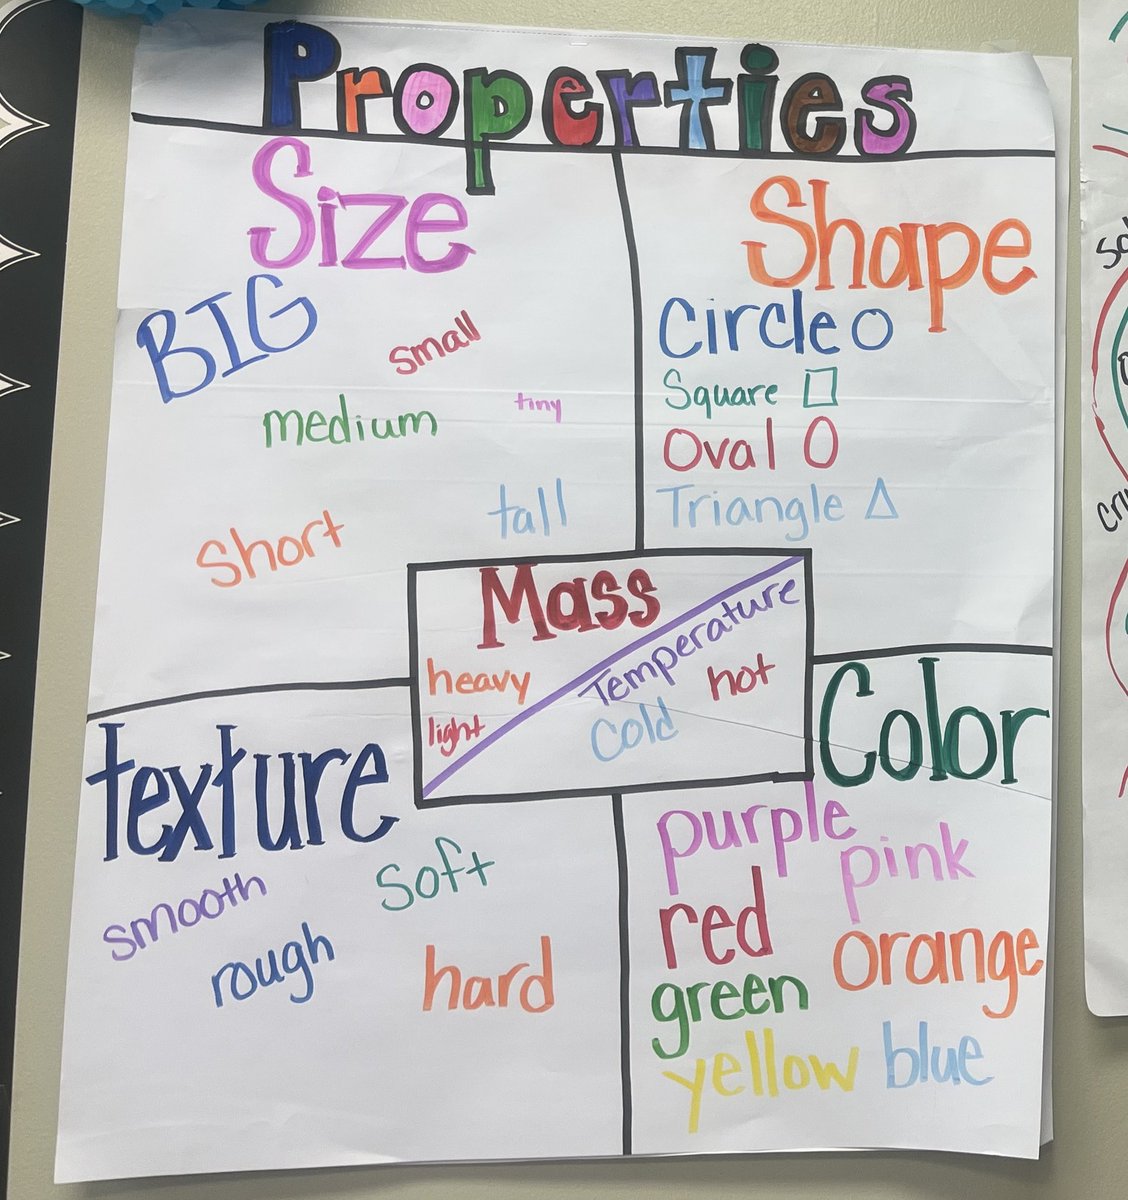 Properties
Size
BIG
small
medium
tiny
tall
Short
Shape
Circle
Square
Oval
Triangle
Mass
heavy
light
Temperature
hot
Cold
texture
smooth
Soft
rough
hard
Color
purple
pink
red
orange
green
yellow
blue